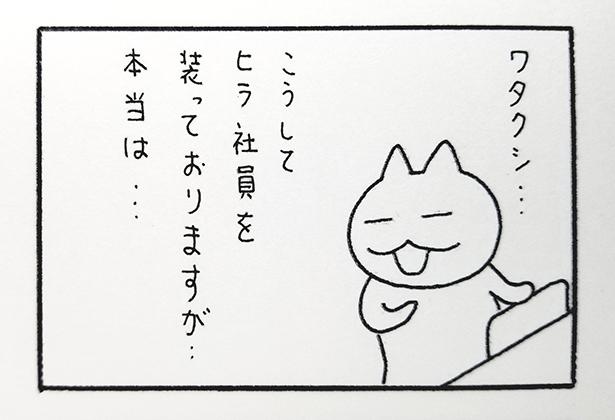 ワタクシ…
こうして
ヒラ社員を
装っておりますが…
本当は…